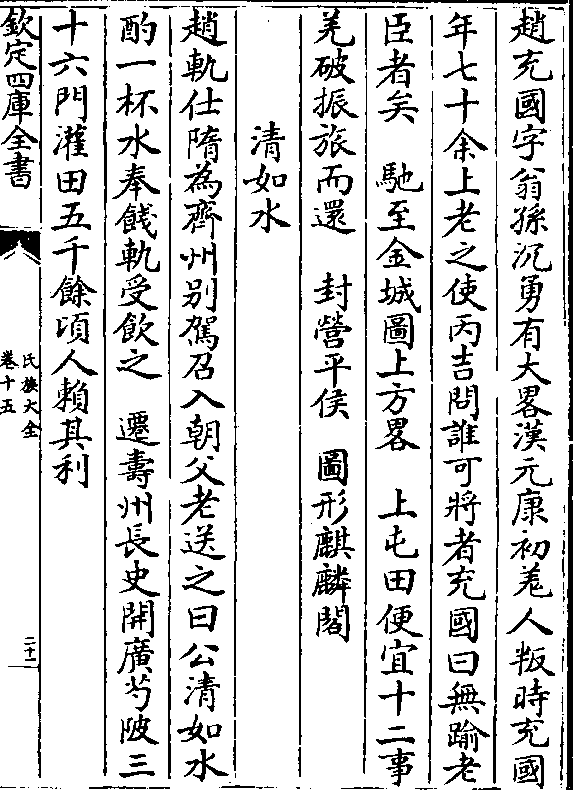 趙充國字翁孫沉勇有大畧漢元康初羌人叛時充國
年七十余上老之使丙吉問誰可將者充國曰無踰老
臣者矣　馳至金城圖上方畧　上屯田便宜十二事
羌破振旅而還　封營平侯　圖形麒麟閣
清如水
趙軌仕隋為齊州别駕召入朝父老送之曰公清如水
酌一杯水奉餞軌受飲之　遷壽州長史開廣芍陂三
十六門灌田五千餘頃人賴其利
欽定四庫全書
氏族大全
卷十五
二十二